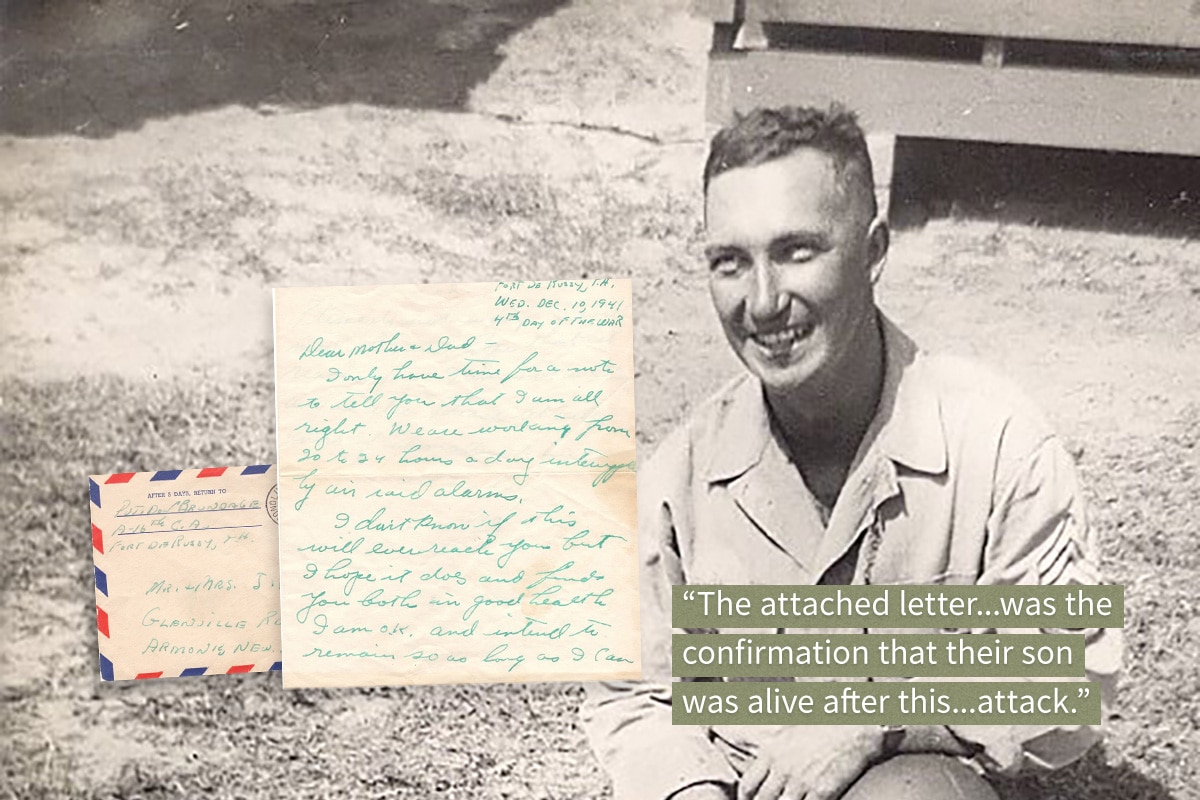 FORT DE RUSSY, T.H.
WED. DEC. 10, 1941
4TH DAY OF THE WAR
Dear Mother & Dad –
I only have time for a note
to tell you that I am all
right. We are working from
20 to 24 hours a day interupted
ly air raid alarms.
I don't know if this
will ever reach you but
I hope it does and finds
you both in good health
I am O.K. and intend to
remain so as long as I can
AFTER 5 DAYS, RETURN TO
BRUNDAGE
A-16TH C.A.
FORT DERUSSY, T.H.
MR. & MRS. J.
GLENVILLE
ARMONK, NEW
“The attached letter...was the
confirmation that their son
was alive after this...attack.”